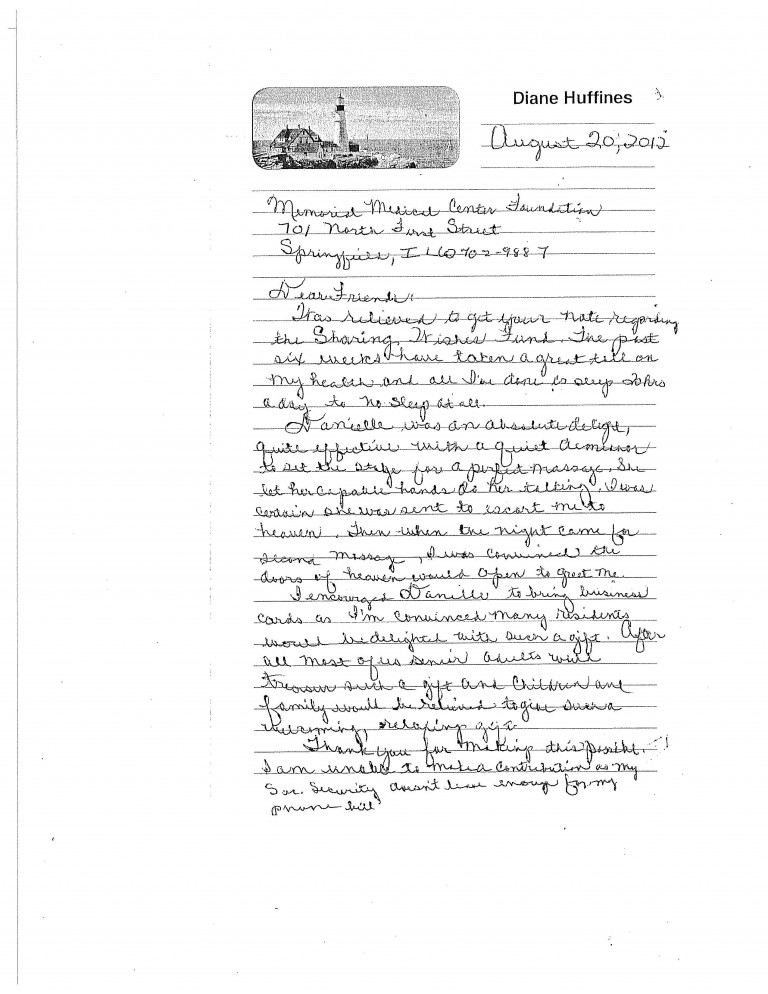 Diane Huffines
August 20, 2012
Memorial Medical Center Foundation
701 North First Street
Springfield, IL 62702-9887
Dear Friends,
I was relieved to get your note regarding
the Sharing Wishes Fund. The past
six weeks have taken a great toll on
my health and all I've done is sleep 20 hrs
a day to no sleep at all.
Danielle was an absolute delight,
quite effective with a quiet demeanor
to set the stage for a perfect massage. She
let her capable hands do her talking. I was
certain she was sent to escort me to
heaven. Then when the night came for
second massag, I was convinced the
doors of heaven would open to greet me.
I encouraged Danielle to bring business
cards as I'm convinced many residents
would be delighted with such a gift. After
all most of us senior adults will
treasure such a gift and children and
family would be relieved to give such a
welcoming, relaxing gift.
Thank you for making this possible.
I am unable to make a contribution as my
Soc. Security doesn't leave enough for my
phone bill